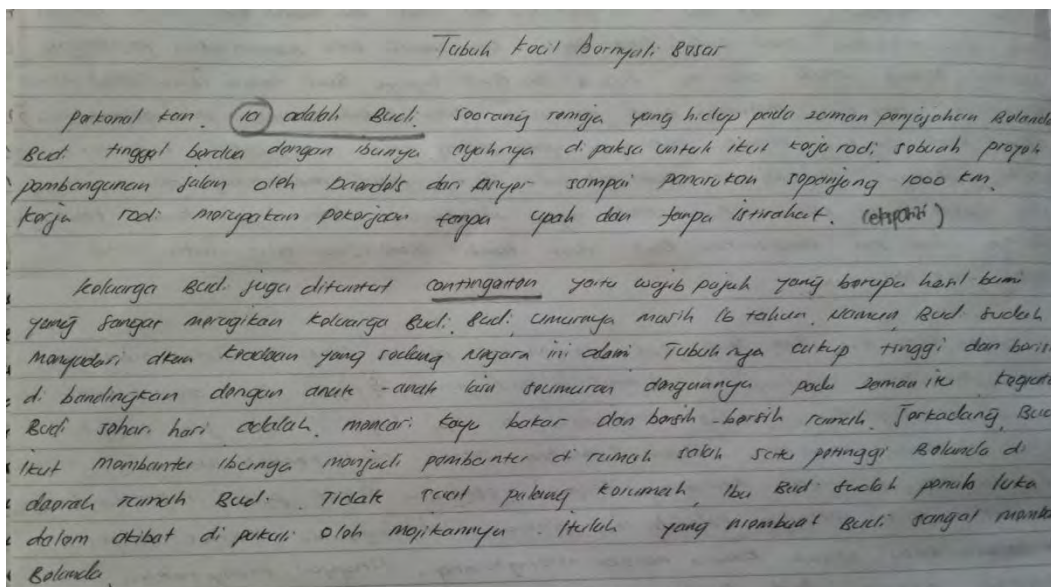 Tubuh Kecil Bernyali Besar
perkenal kan. ia adalah Budi. seorang remaja yang hidup pada zaman penjajahan Belanda
Budi tinggal berdua dengan ibunya ayahnya di paksa untuk ikut kerja rodi, sebuah proyek
pembangunan jalan oleh Daendels dari Anyer sampai panarukan sepanjang 1000 km.
kerja rodi merupakan pekerjaan tanpa upah dan tanpa istirahat. (eksposisi)
keluarga Budi juga dituntut contingenten yaitu wajib pajak yang berupa hasil bumi
yang sangat merugikan keluarga Budi. Budi umurnya masih 16 tahun. Namun, Budi sudah
menyadari akan keadaan yang sedang Negara ini alami Tubuh nya cukup tinggi dan
di bandingkan dengan anak - anak lain seumuran dengannya pada zaman itu
Budi sehari hari adalah, mencari kayu bakar dan bersih - bersih rumah. Terkadang,
ikut membantu ibunya menjadi pembantu di rumah salah satu petinggi Belanda di
daerah rumah Budi. Tidak saat pulang kerumah, Ibu Budi sudah penuh luka
dalam akibat di pukuli oleh majikannya. Itulah yang membuat Budi sangat
Belanda.